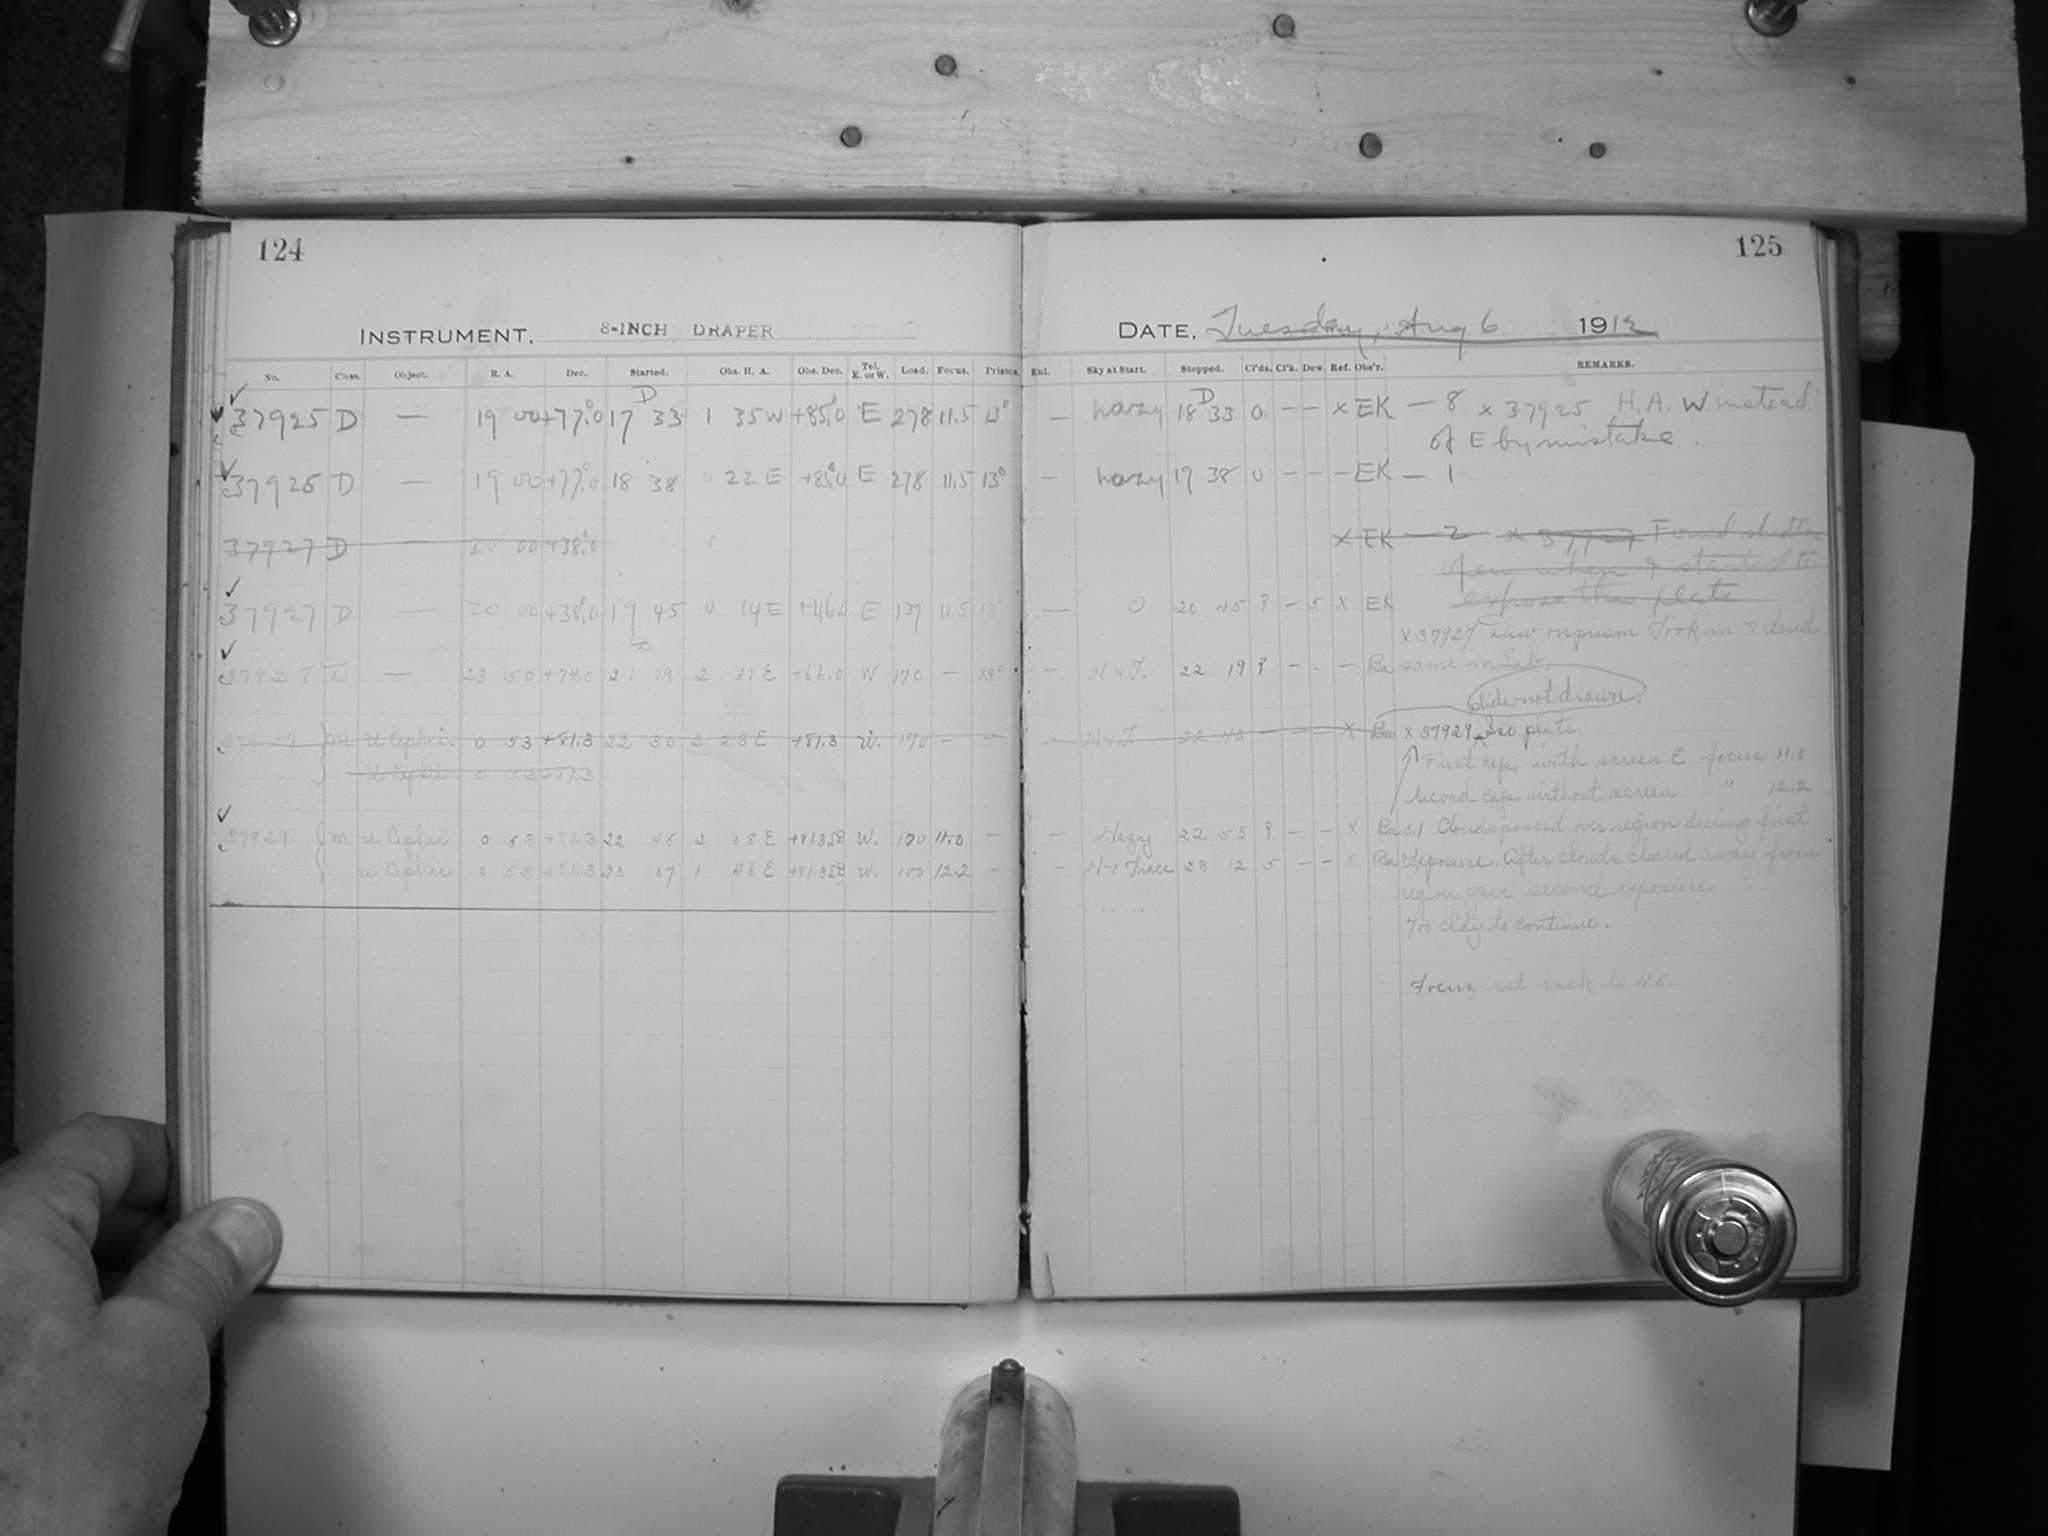 124
125
INSTRUMENT. 8-INCH DRAPER
DATE. Tuesday, Aug 6 1912
No. Class. Object. R. A. Dec. Started. Obs. H. A. Obs. Dec. Tel. E. or W. Load. Focus. Prisms.
Enl. Sky at Start. Stopped. Cl'ds. Cl'k. Dew. Ref. Obs'r. REMARKS.
D D
37925 D — 19 00 +77.0 17 33 1 35 W +85.0 E 278 11.5 13° — hazy 18 33 0 — — x EK — 8 x 37925 H.A. W instead
of E by mistake.
37926 D — 19 00 +77.0 18 38 0 22 E +85.0 E 278 11.5 13° — hazy 19 38 0 — — — EK — 1
37927 D — 20 00 +38.0 X EK — 2 x 37927 Found shutter
open when I started to
expose this plate
37927 D — 20 00 +38.0 19 45 0 14 E +46.0 E 139 11.5 13° — 0 20 45 ? — 5 X EK
x 37927 Dew on prism Took in & dried
37928 D — 23 50 +74.0 21 19 2 31 E +66.0 W 170 — 13° — N & T. 22 19 ? — — — Ba same in Lab.
Slide not drawn.
37929 M U Cephei. 0 53 +81.3 22 30 2 23 E +81.3 W. 170 — — — N & T. 22 40 — — — X Ba x 37929 Iso plate.
U Cephei 0 53 +81.3
First exp. with screen E focus 11.0
Second exp. without screen " 12.2
37929 M U Cephei 0 53 +81.3 22 45 2 08 E W. 100 11.0 — — Hazy 22 55 ? — — X Ba Clouds passed over region during first
U Cephei 0 53 +81.3 23 07 1 46 E W. 100 12.2 — — N & Trace 23 12 5 — — X Ba exposure. After clouds cleared away from
region gave second exposure.
Too cldy to continue.
Focus set back to 11.5.